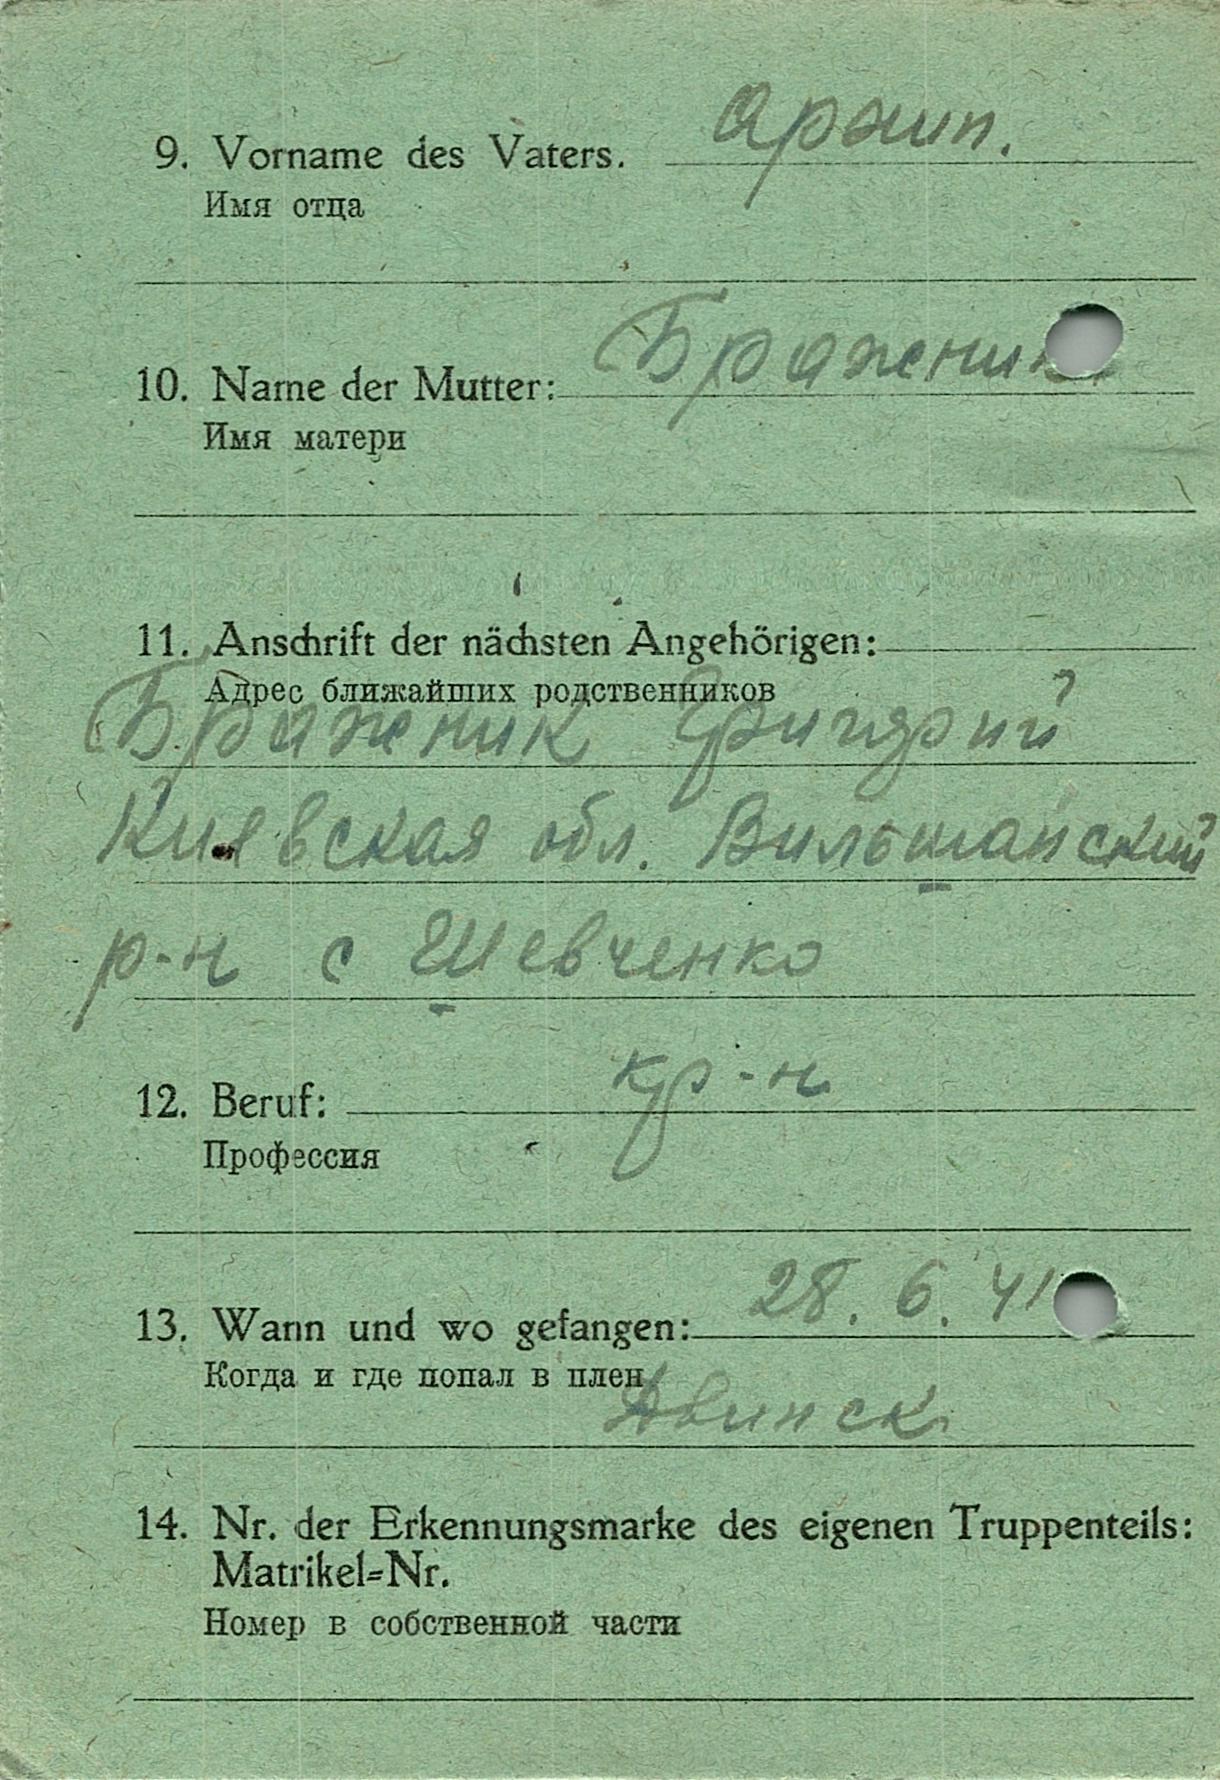 9. Vorname des Vaters. Архип.
Имя отца
10. Name der Mutter: Бражник
Имя матери
11. Anschrift der nächsten Angehörigen:
Адрес ближайших родственников
Бражник Григорий
Киевская обл. Вильшанский
р-н с Шевченко
12. Beruf: кр-н
Профессия
13. Wann und wo gefangen: 28. 6. 41
Когда и где попал в плен
Двинск
14. Nr. der Erkennungsmarke des eigenen Truppenteils:
Matrikel=Nr.
Номер в собственной части